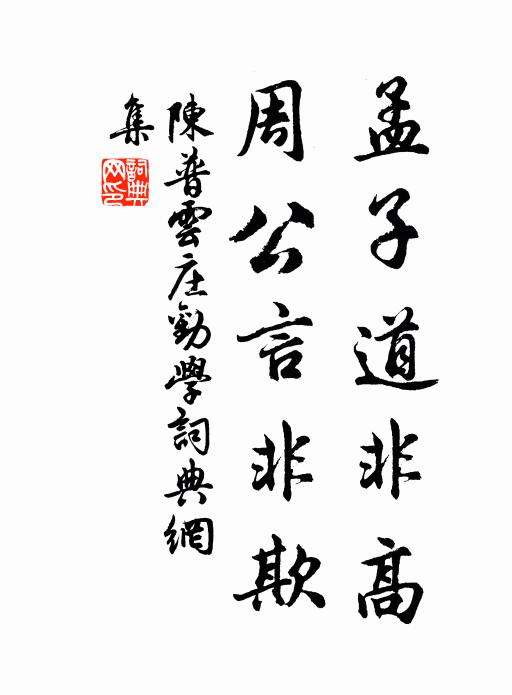 孟子道非高
周公言非欺
陳普雲庄勸學詞典網
集
詞典網印